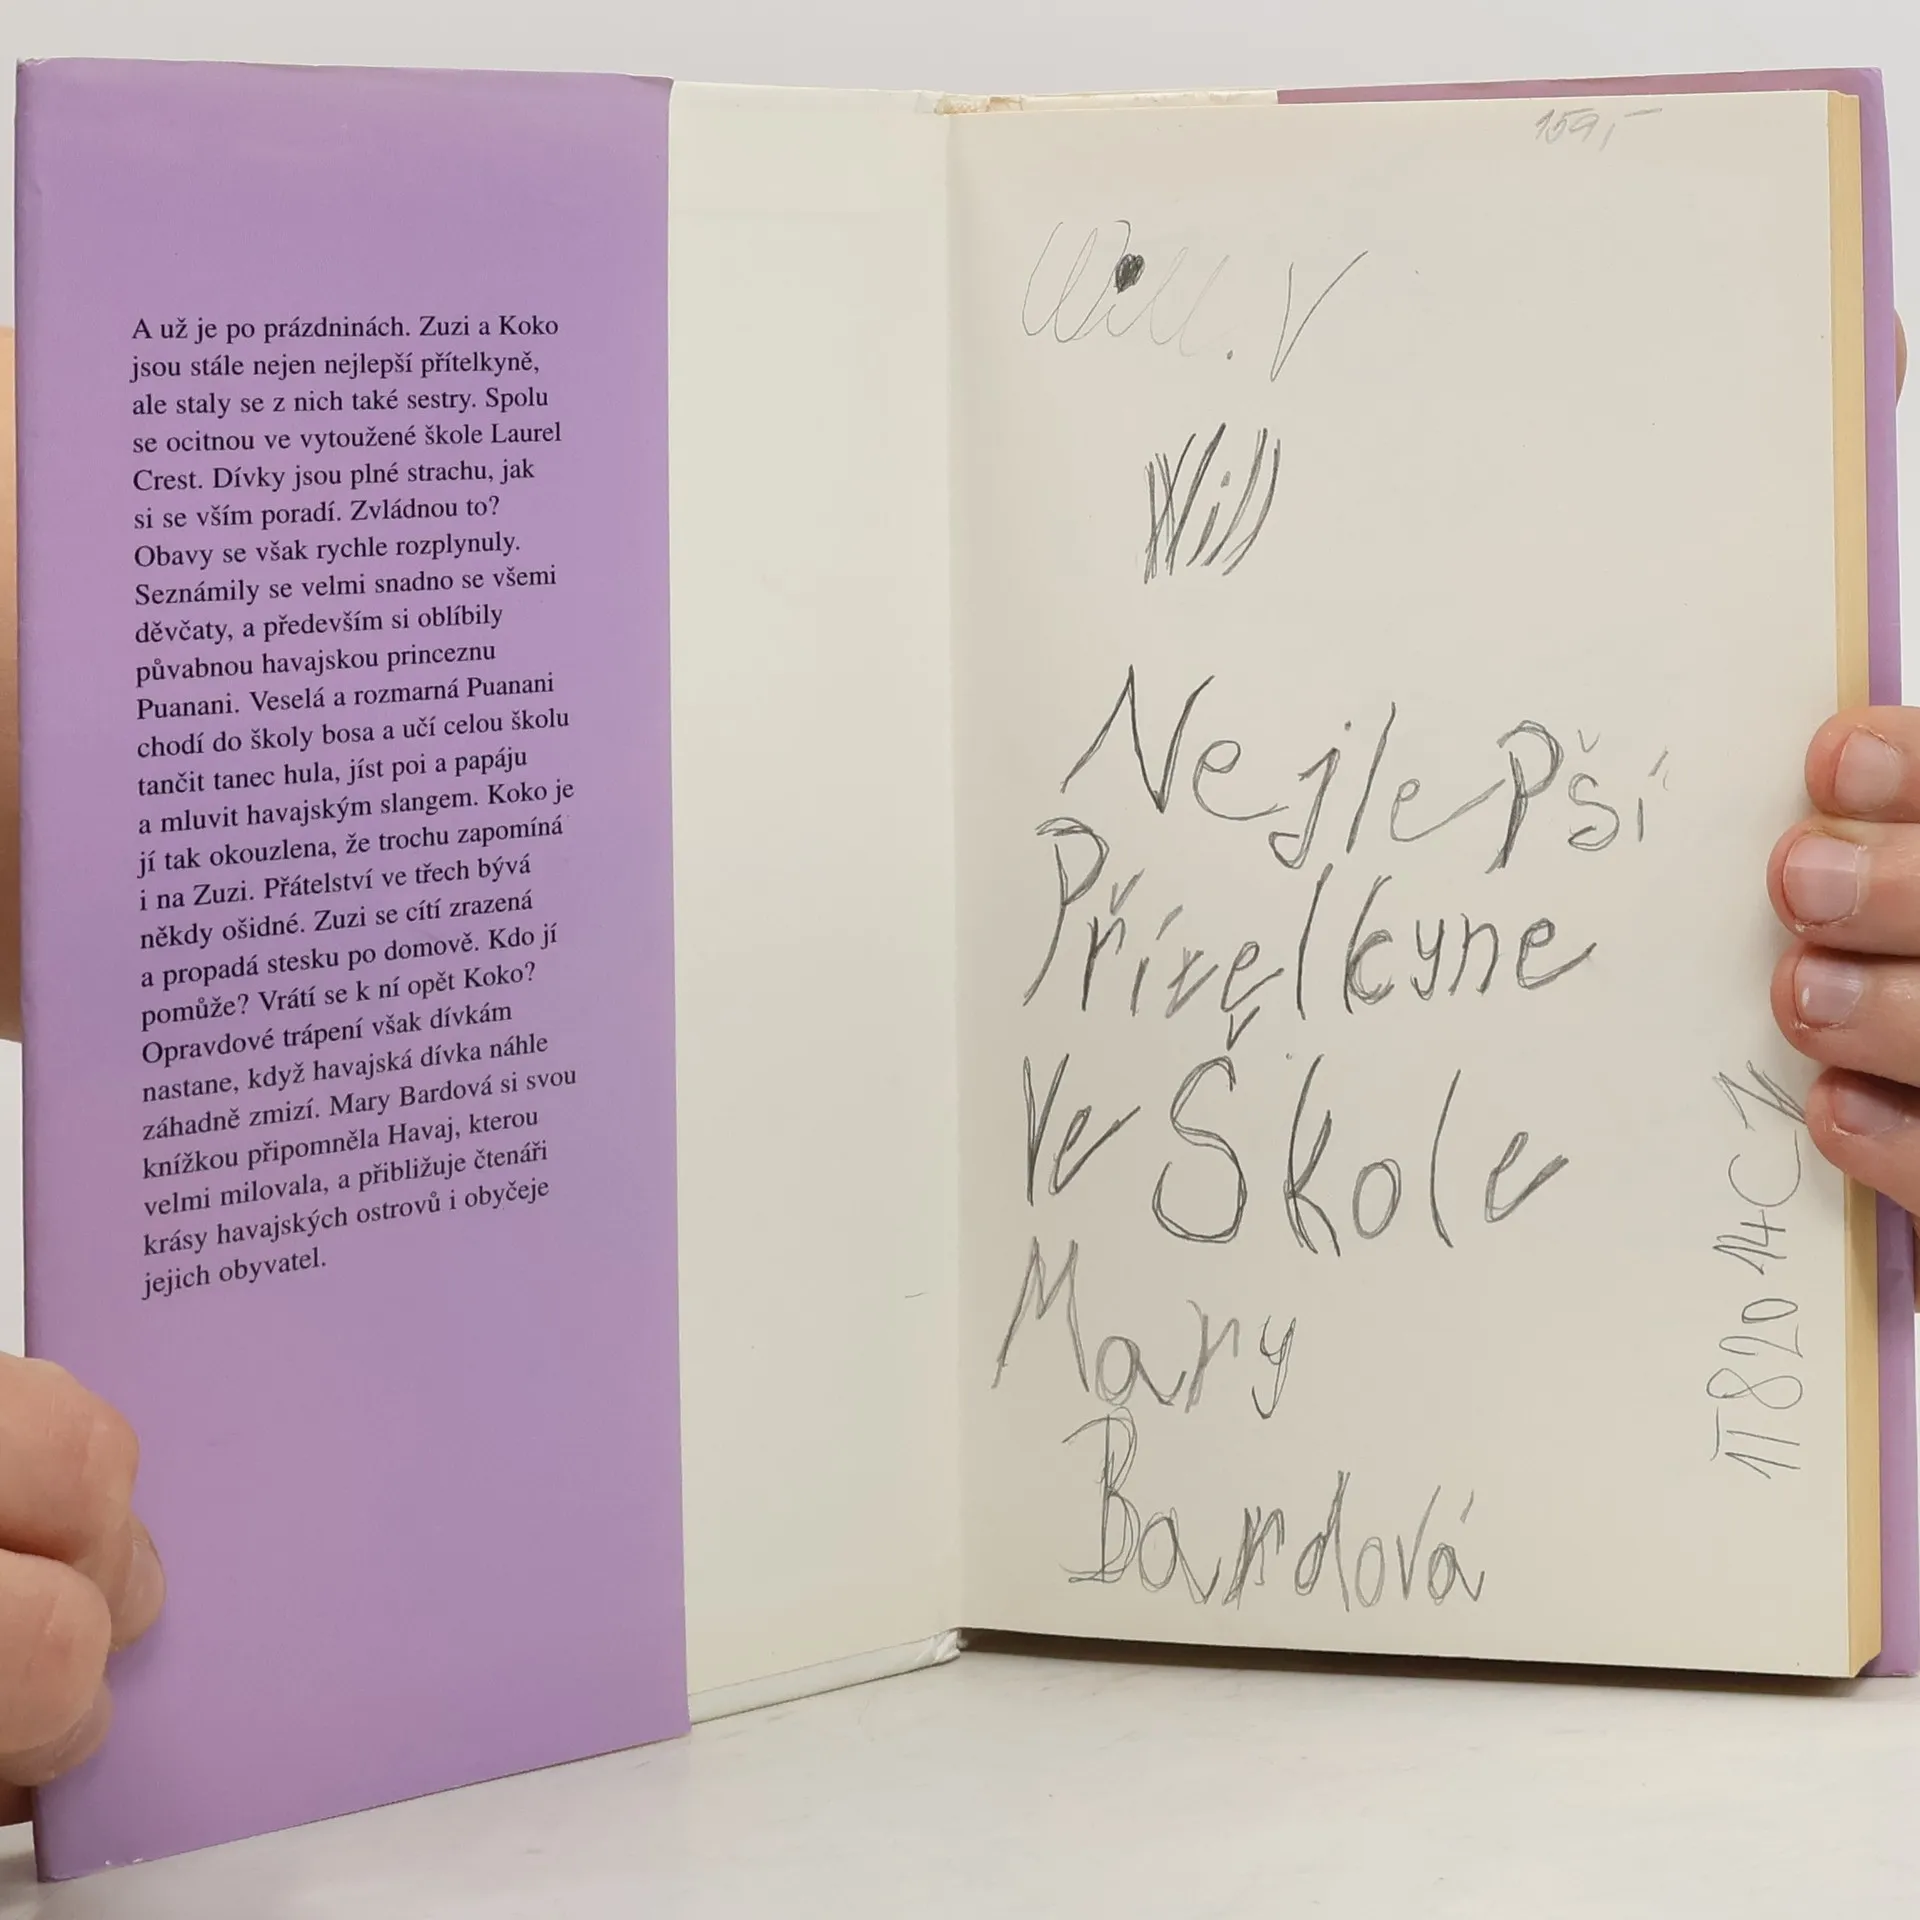 A už je po prázdninách. Zuzi a Koko
jsou stále nejen nejlepší přítelkyně,
ale staly se z nich také sestry. Spolu
se ocitnou ve vytoužené škole Laurel
Crest. Dívky jsou plné strachu, jak
si se vším poradí. Zvládnou to?
Obavy se však rychle rozplynuly.
Seznámily se velmi snadno se všemi
děvčaty, a především si oblíbily
půvabnou havajskou princeznu
Puanani. Veselá a rozmarná Puanani
chodí do školy bosa a učí celou školu
tančit tanec hula, jíst poi a papáju
a mluvit havajským slangem. Koko je
jí tak okouzlena, že trochu zapomíná
i na Zuzi. Přátelství ve třech bývá
někdy ošidné. Zuzi se cítí zrazená
a propadá stesku po domově. Kdo jí
pomůže? Vrátí se k ní opět Koko?
Opravdové trápení však dívkám
nastane, když havajská dívka náhle
záhadně zmizí. Mary Bardová si svou
knížkou připomněla Havaj, kterou
velmi milovala, a přibližuje čtenáři
krásy havajských ostrovů i obyčeje
jejich obyvatel.
159,-
Will. V
Will
Nejlepší
Přítelkyne
ve Škole
Mary
Bardová